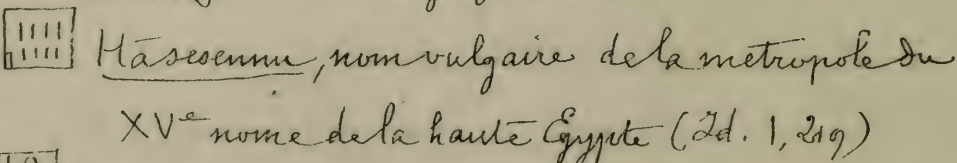 Hāsesennu, nom vulgaire de la métropole du
XVe nome de la haute Egypte (Id. 1, 219)